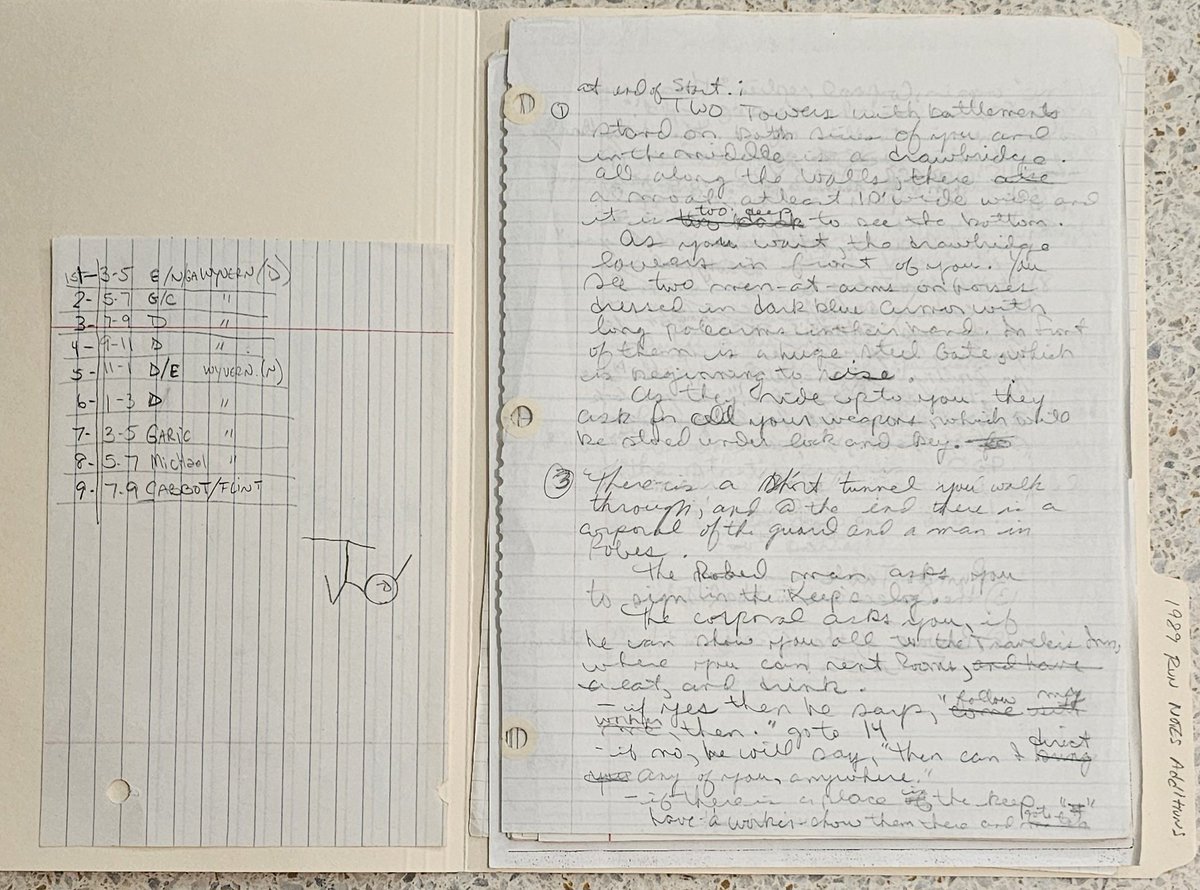 1st- 3-5 E/NGA WYVERN (D)
2- 5-7 G/C "
3- 7-9 D "
4- 9-11 D "
5- 11-1 D/E WYVERN (N)
6- 1-3 D "
7- 3-5 GARIC "
8- 5-7 Michael "
9- 7-9 CABBOT/FLINT
at end of Start:
① Two Towers with battlements
stand on both sides of you and
in the middle is a drawbridge.
all along the walls, there
a moat at least 10' wide wide and
it is too deep to see the bottom.
As you wait the drawbridge
lowers in front of you. You
see two men-at-arms on horses
dressed in dark blue armor with
long polearms in their hand. In front
of them is a huge steel Gate, which
is beginning to raise.
As they ride up to you they
ask for all your weapons, which will
be stored under lock and key.
③ There is a short tunnel you walk
through, and @ the end there is a
corporal of the guard and a man in
robes.
The Robed man asks you
to sign in the Keeps log.
The corporal asks you, if
he can show you all to the Travelers Inn,
where you can rent Rooms, and have
eat, and drink.
- if yes then he says, "follow
me, then." goto 14
- if no, he will say, "then can I direct
any of you, anywhere."
- if there is a place in the keep
have a worker show them there and goto
1989 RUN NOTES ADDITIONS